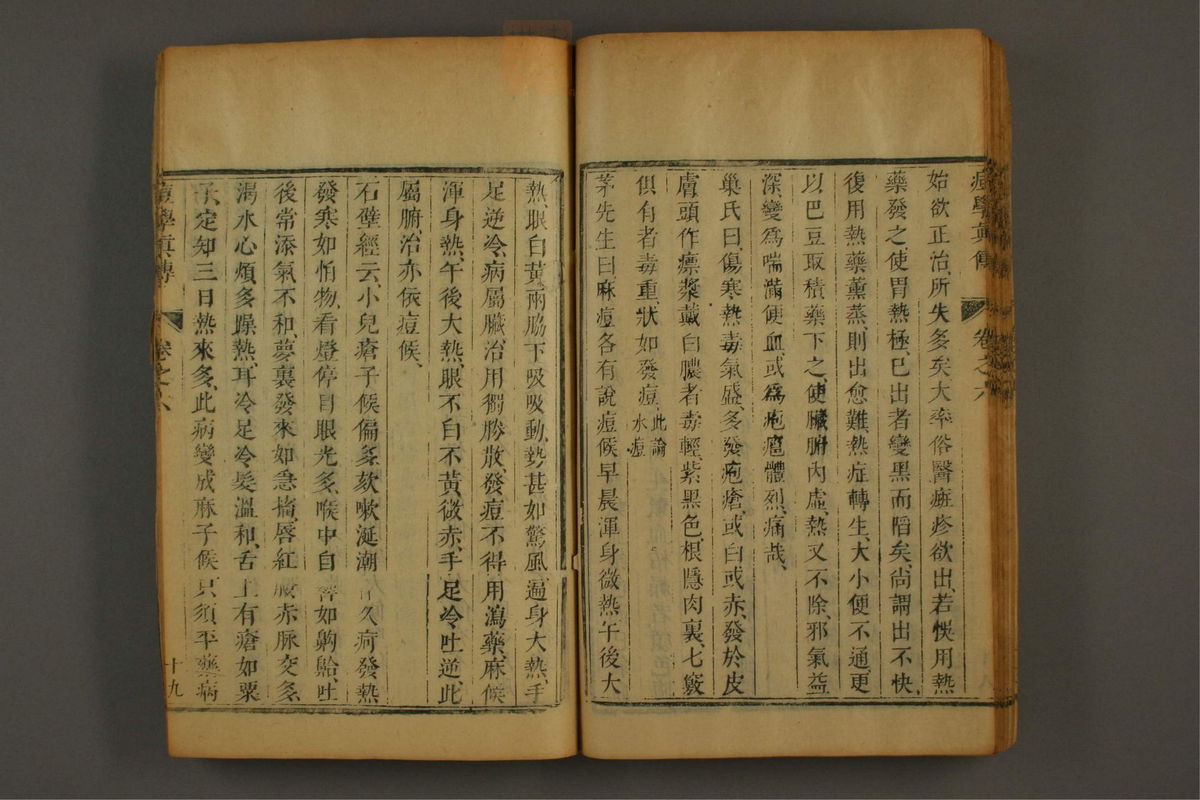 痘學真傳　卷之六
始欲正治所失多矣大率俗醫斑疹欲出若悞用熱
藥發之使胃熱極已出者變黑而陷矣尚謂出不快
後用熱藥薰蒸則出愈難熱症轉生大小便不通更
以巴豆取積藥下之使臟腑內虛熱又不除邪氣益
深變爲喘滿便血或爲疱癰體烈痛哉
巢氏曰傷寒熱毒氣盛多發疱瘡或白或赤發於皮
膚頭作瘭漿戴白膿者毒輕紫黑色根隱肉裏七竅
俱有者毒重狀如發痘此論水痘
茅先生曰麻痘各有說痘候早晨渾身微熱午後大
熱眼白黃兩脇下吸吸動勢甚如驚風遍身大熱手
足逆冷病屬臟治用獨勝散發痘不得用瀉藥麻候
渾身熱午後大熱眼不白不黃微赤手足冷吐逆此
屬腑治亦依痘候
石壁經云小兒瘡子候偏多欬嗽涎潮 久病發熱
發寒如怕物看燈停目眼光多喉中自 如齁䶎吐
後常添氣不和夢裏發來如急搐唇紅 赤脉交多
渴水心煩多躁熱耳冷足冷髮溫和舌上有瘡如粟
子定知三日熱來多此病變成麻子候只須平藥病
痘學真傳　卷之六　十九